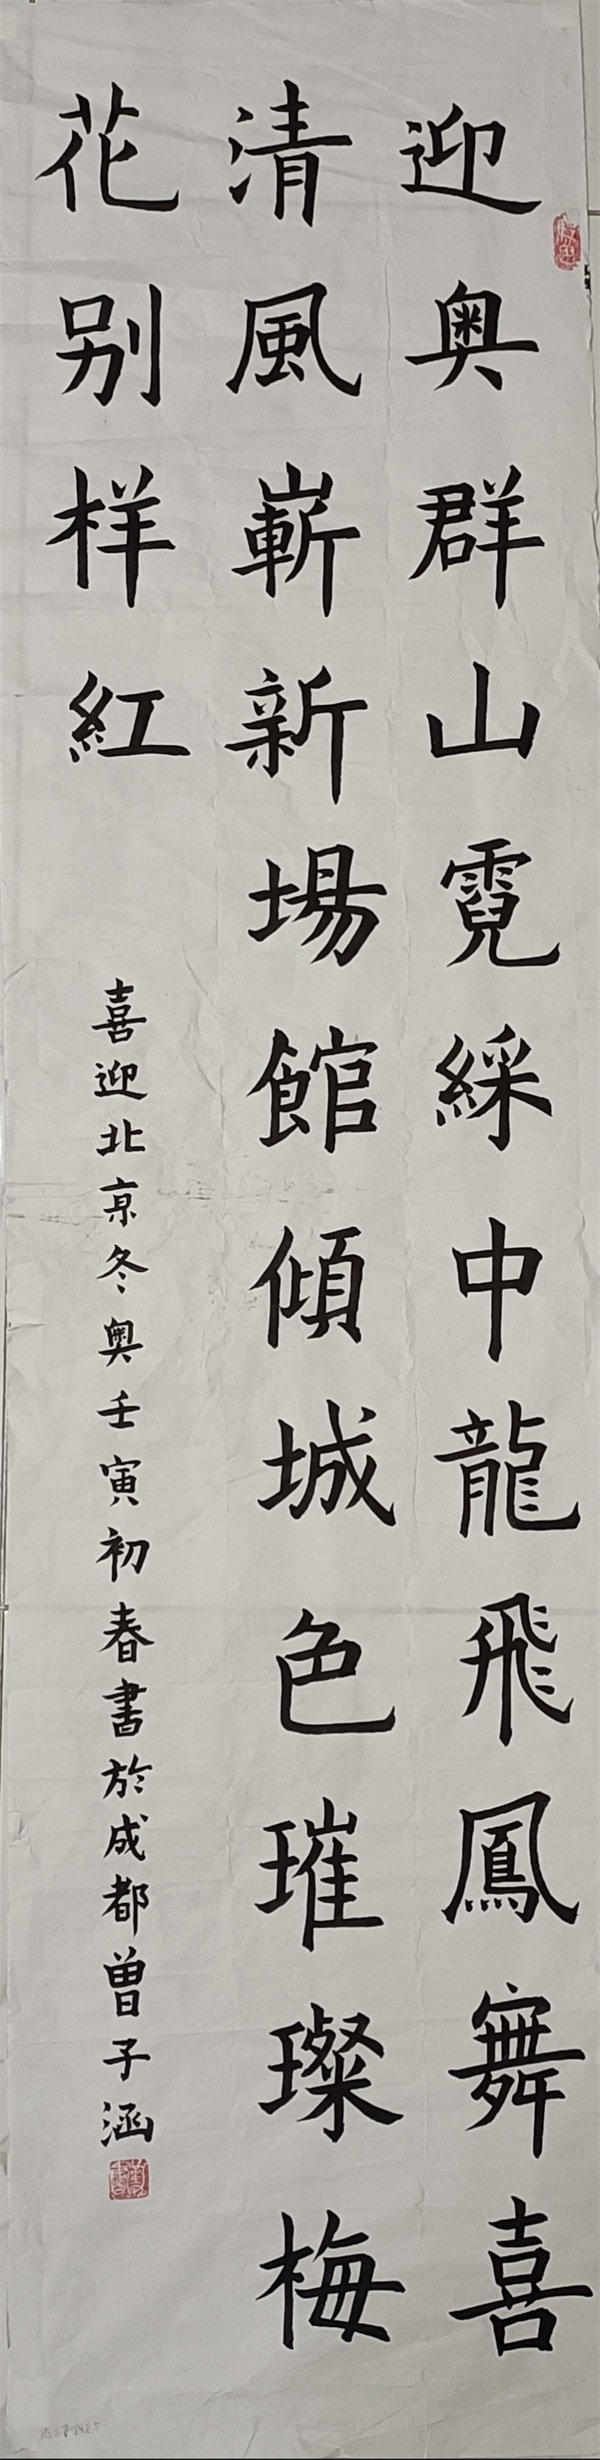 迎奥群山霓綵中龍飛鳳舞喜
清風嶄新場館傾城色璀璨梅
花别样紅
喜迎北京冬奥壬寅初春書於成都曾子涵